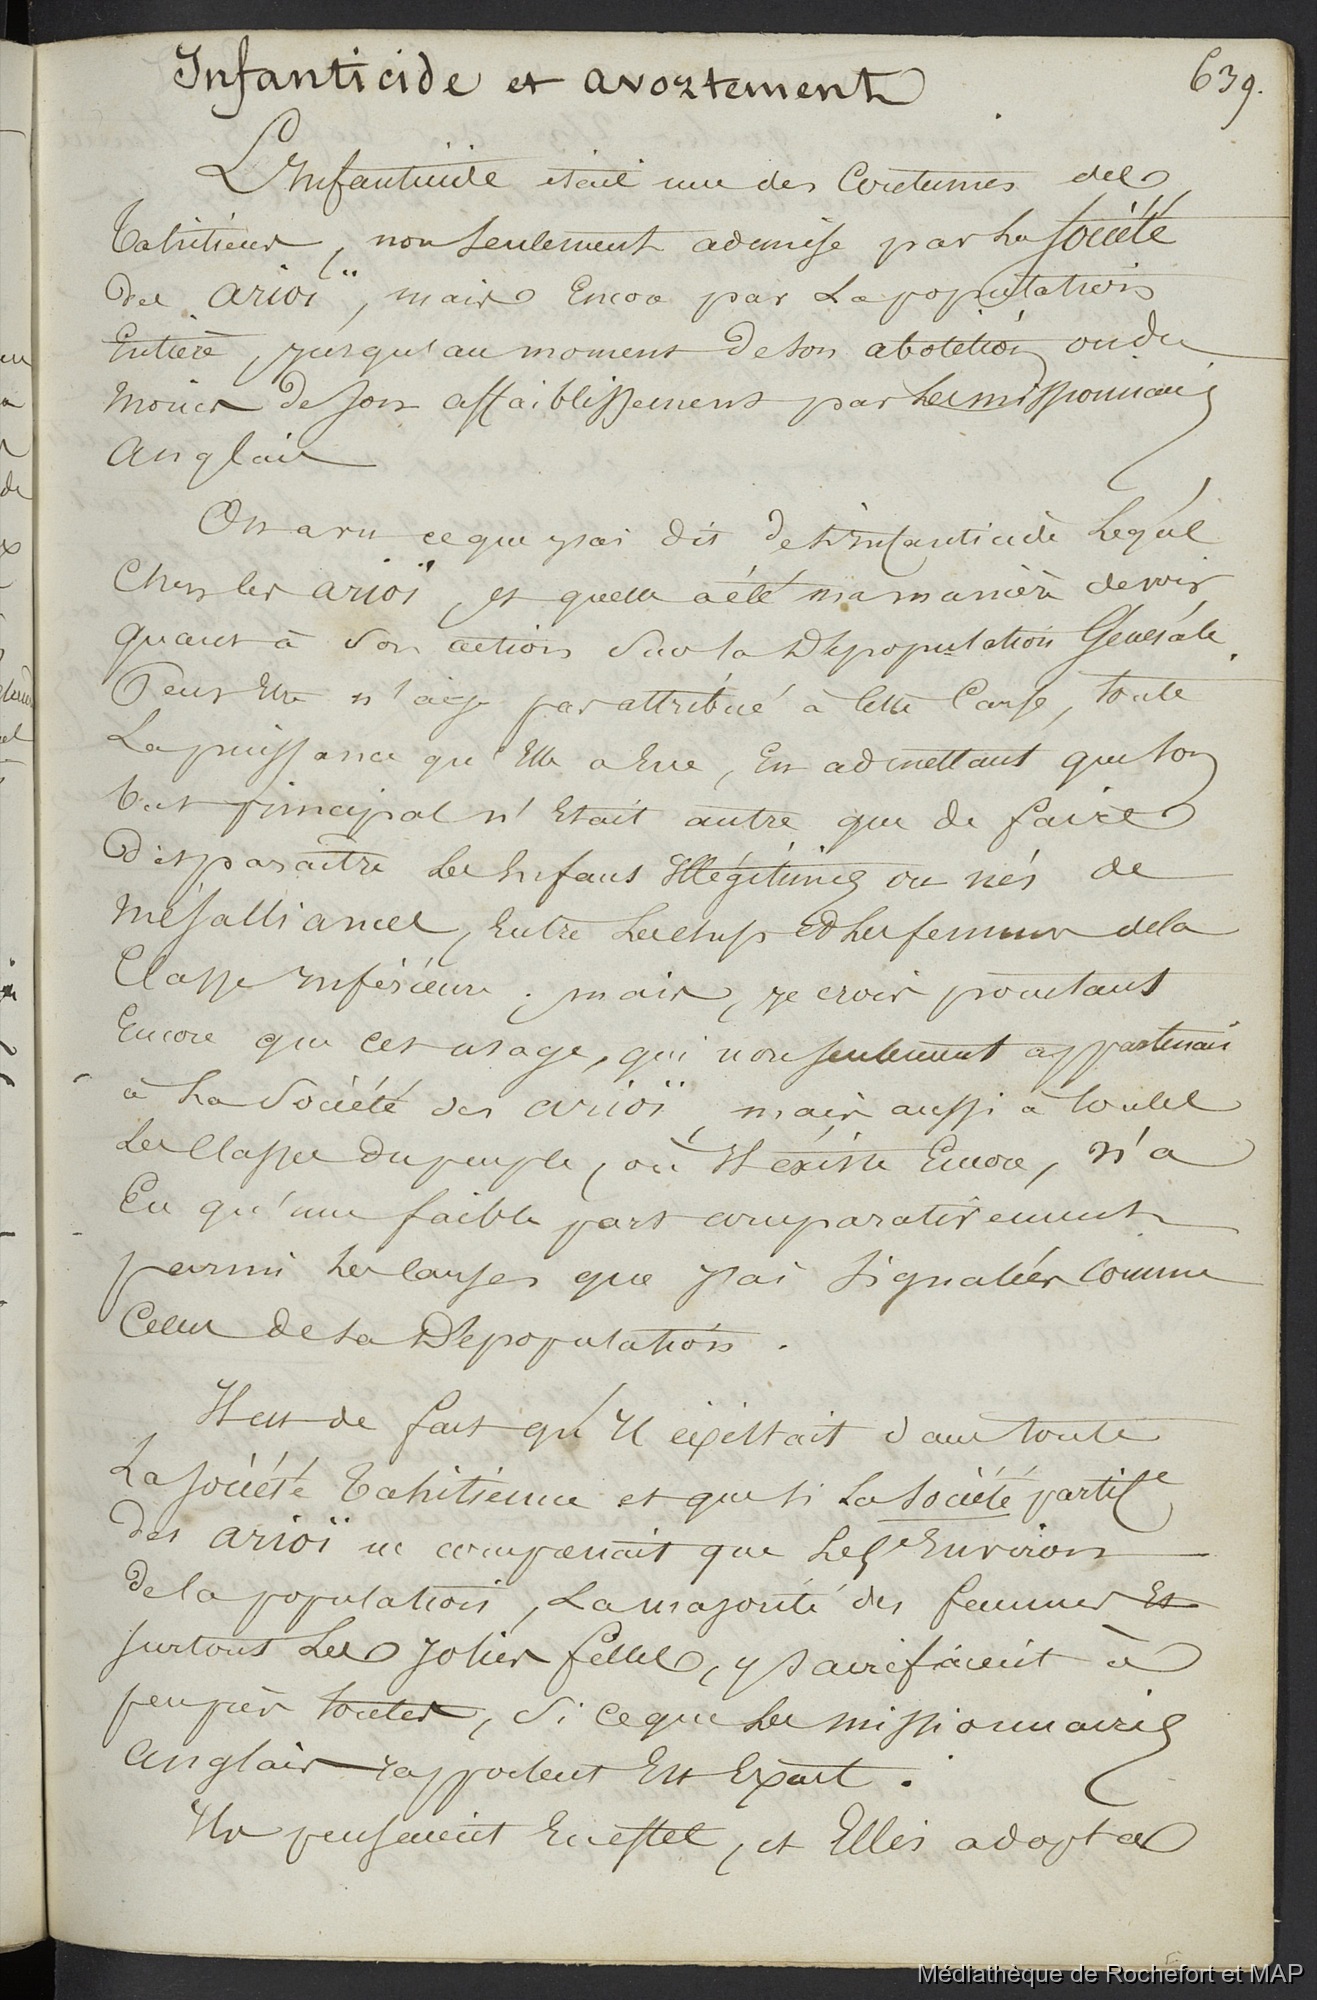 Infanticide et avortement
639.
L'Infanticide était une des Coutumes des
Tahitiens, non seulement admise par la Société
des arioï, mais Encore par La population
Entière, jusqu'au moment de son abolition ou du
moins de son affaiblissement par les missionnaires
anglais
On a vu ce que j'ai dit de L'infanticide Légal
Chez les arioï, et quelle a été ma manière de voir
quant à son action Sur la Dépopulation Générale.
Peut Etre n'ai-je pas attribué à Cette Cause, toute
La puissance qu'Elle a Eue, En admettant que son
but principal n'Etait autre que de faire
disparaître les Enfans Illégitimes ou nés de
mésalliances, Entre Les chefs et les femmes de la
Classe Inférieure ; mais, je crois pourtant
Encore que cet usage, qui non seulement appartenait
à La Société des arioï, mais aussi à toutes
les Classes du peuple, où Il existe Encore, n'a
Eu qu'une faible part comparativement
parmi les causes que j'ai signalées Comme
Celles de La Dépopulation.
Il est de fait qu'Il existait dans toute
La société Tahitienne et que si La Société partic.e
des arioï ne comprenait que Le 5e Environ
de la population, La majorité des femmes Et
surtout Les jolies filles, y sacrifiaient à
peu près toutes, Si ce que les missionnaires
anglais rapportent Est Exact.
Ils pensaient En effet, et Ellis adopta
Médiathèque de Rochefort et MAP